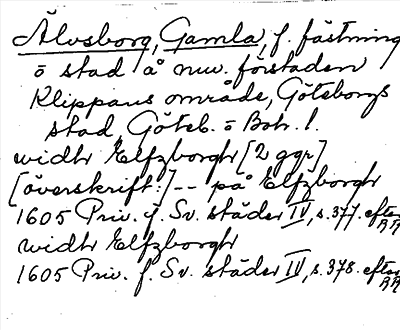 Älvsborg, Gamla, f. fästning
o stad å nuv. förstaden
Klippans område, Göteborgs
stad, Göteb. o Boh. l.
widh Elfzborgh [2 ggr]
[överskrift:] -- på Elfzborgh
1605 Priv. f. Sv. städer IV, s. 377. efter RR
widh Elfzborgh
1605 Priv. f. Sv. städer IV, s. 378. efter RR